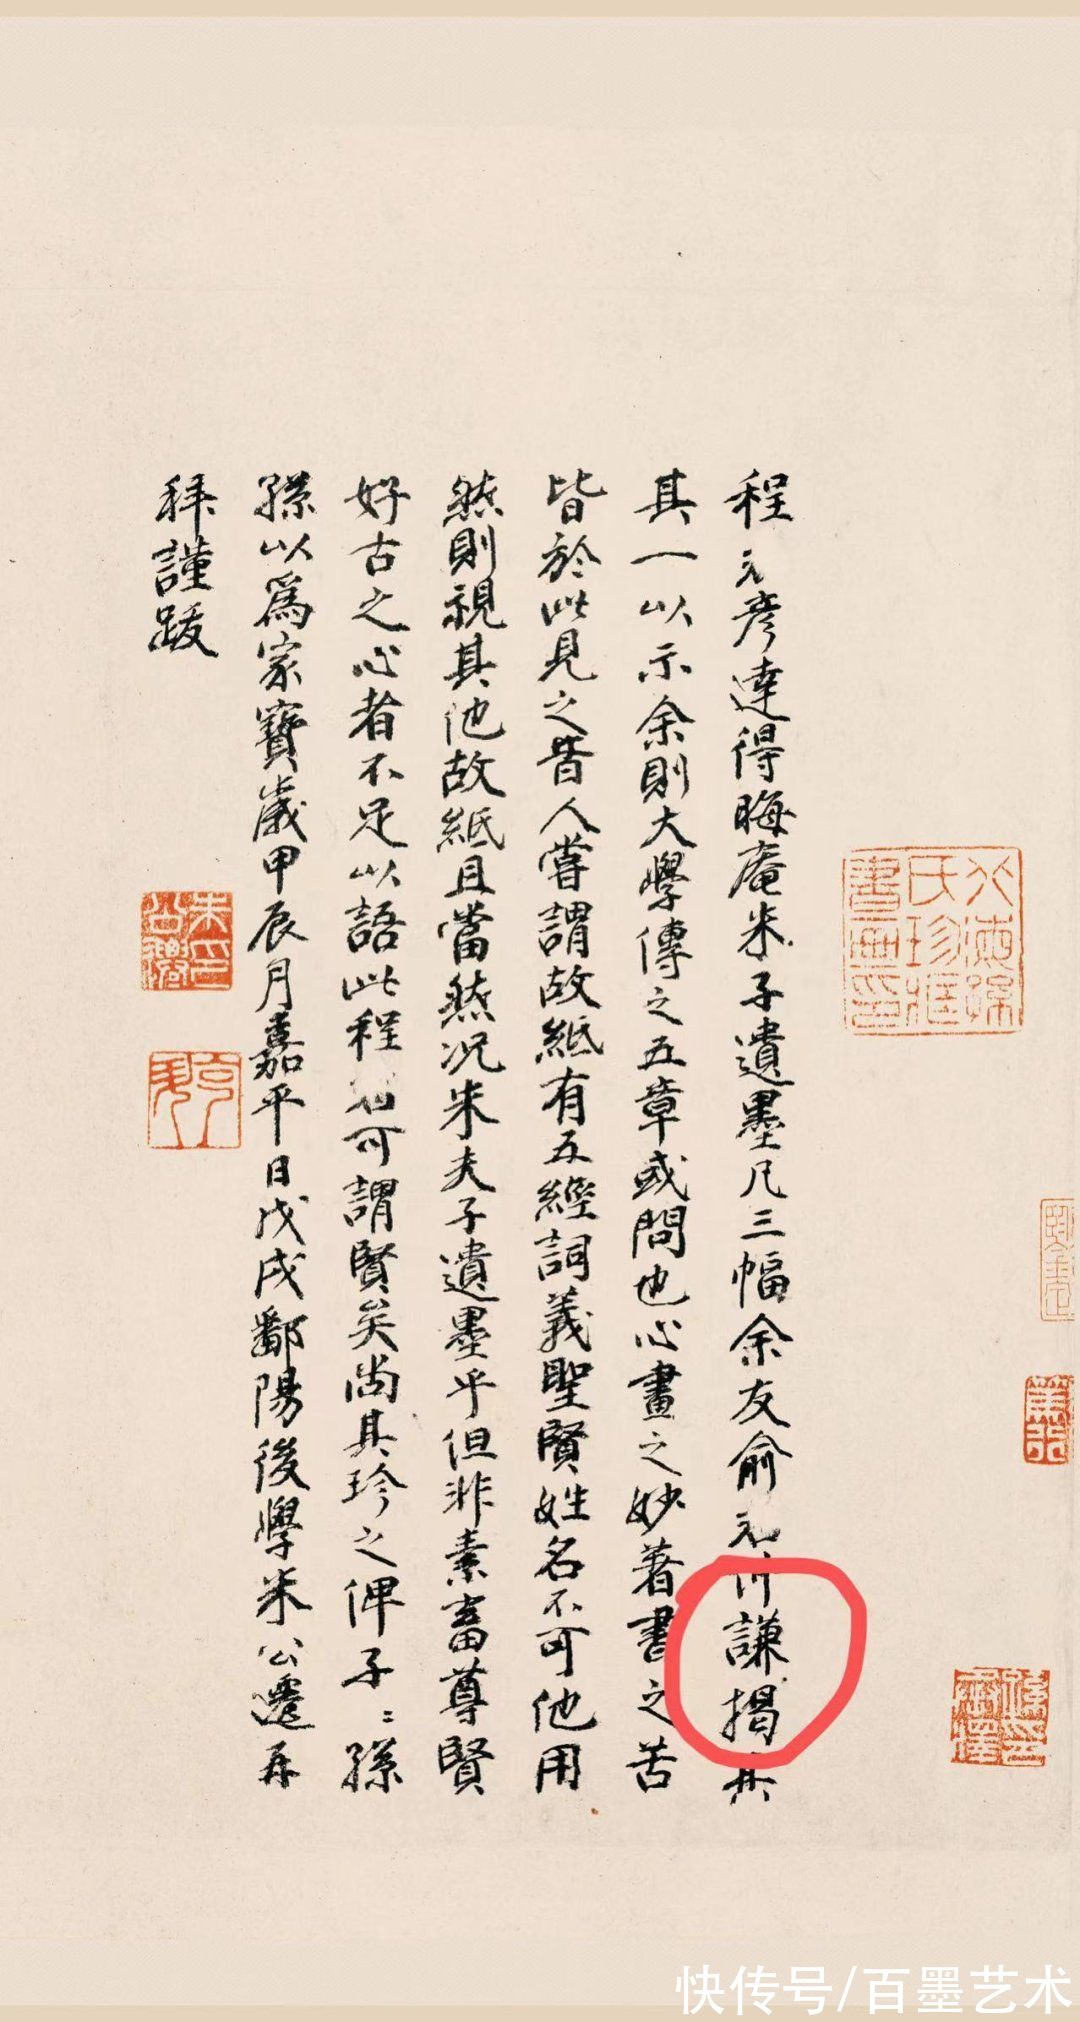 程元彦達得晦庵朱子遺墨凡三幅余友俞元謙揭
其一以示余則大學傳之五章或問也心畫之妙著書之苦
皆於此見之昔人嘗謂故紙有五經詞義聖賢姓名不可他用
然則視其他故紙且當然况朱夫子遺墨乎但非素畜尊賢
好古之心者不足以語此程可謂賢矣尚其珍之俾子〻孫
孫以爲家寶歲甲辰月嘉平日戊戌鄱陽後學朱公遷再
拜謹跋
朱印公遷
氏珍藏書畫印
快传号/百墨艺术